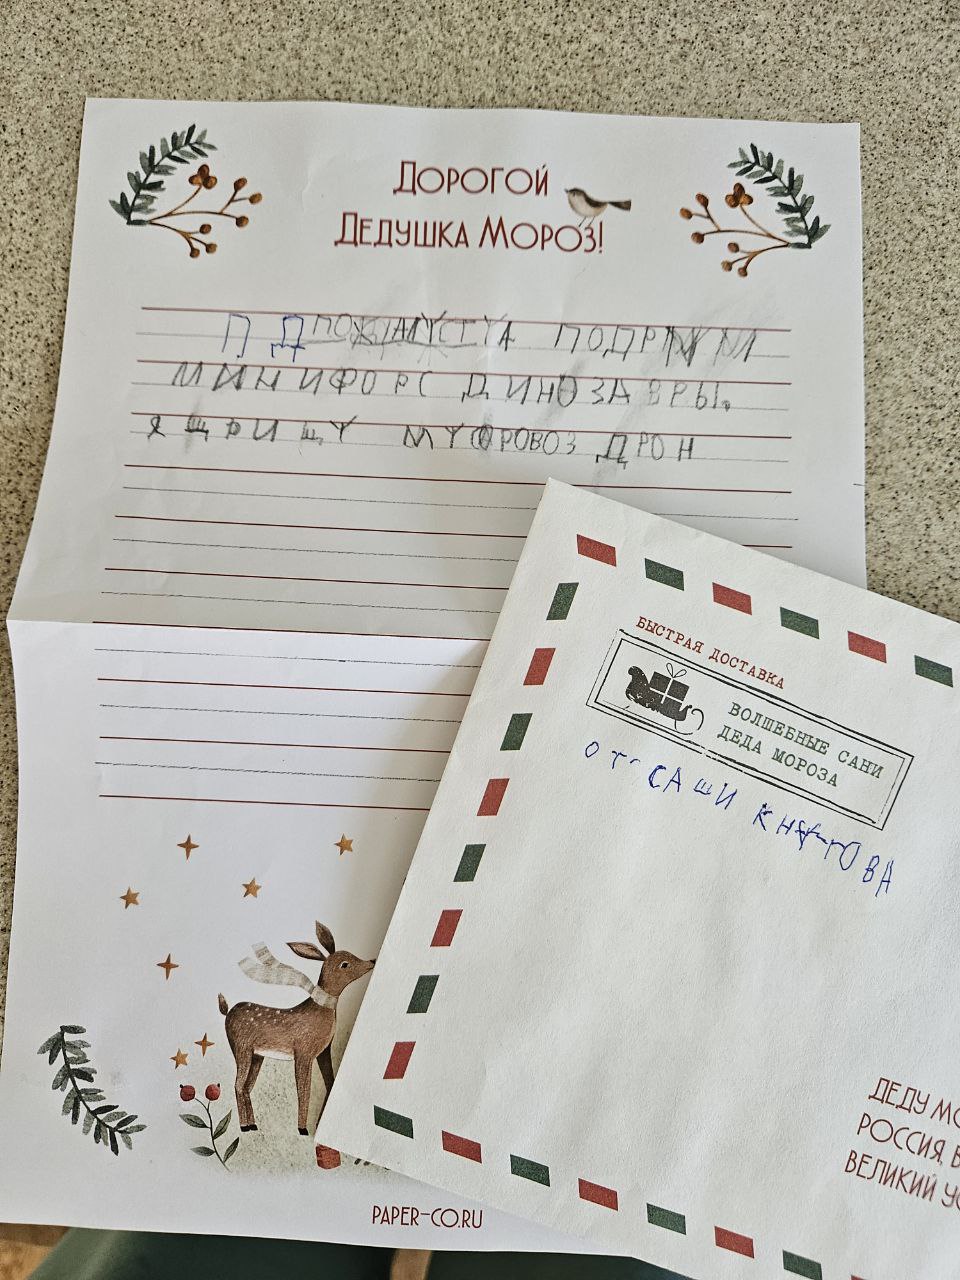 ДОРОГОЙ
ДЕДУШКА МОРОЗ!
П Д ПОЖАЛУСТА ПОДРЖИ
МИНИФОРС ДИНОЗАВРЫ,
ЯЩРИЩУ МУСОРОВОЗ ДРОН
БЫСТРАЯ ДОСТАВКА
ВОЛШЕБНЫЕ САНИ
ДЕДА МОРОЗА
ОТ САШИ
ДЕДУ МО
РОССИЯ, В
ВЕЛИКИЙ УС
PAPER-CO.RU